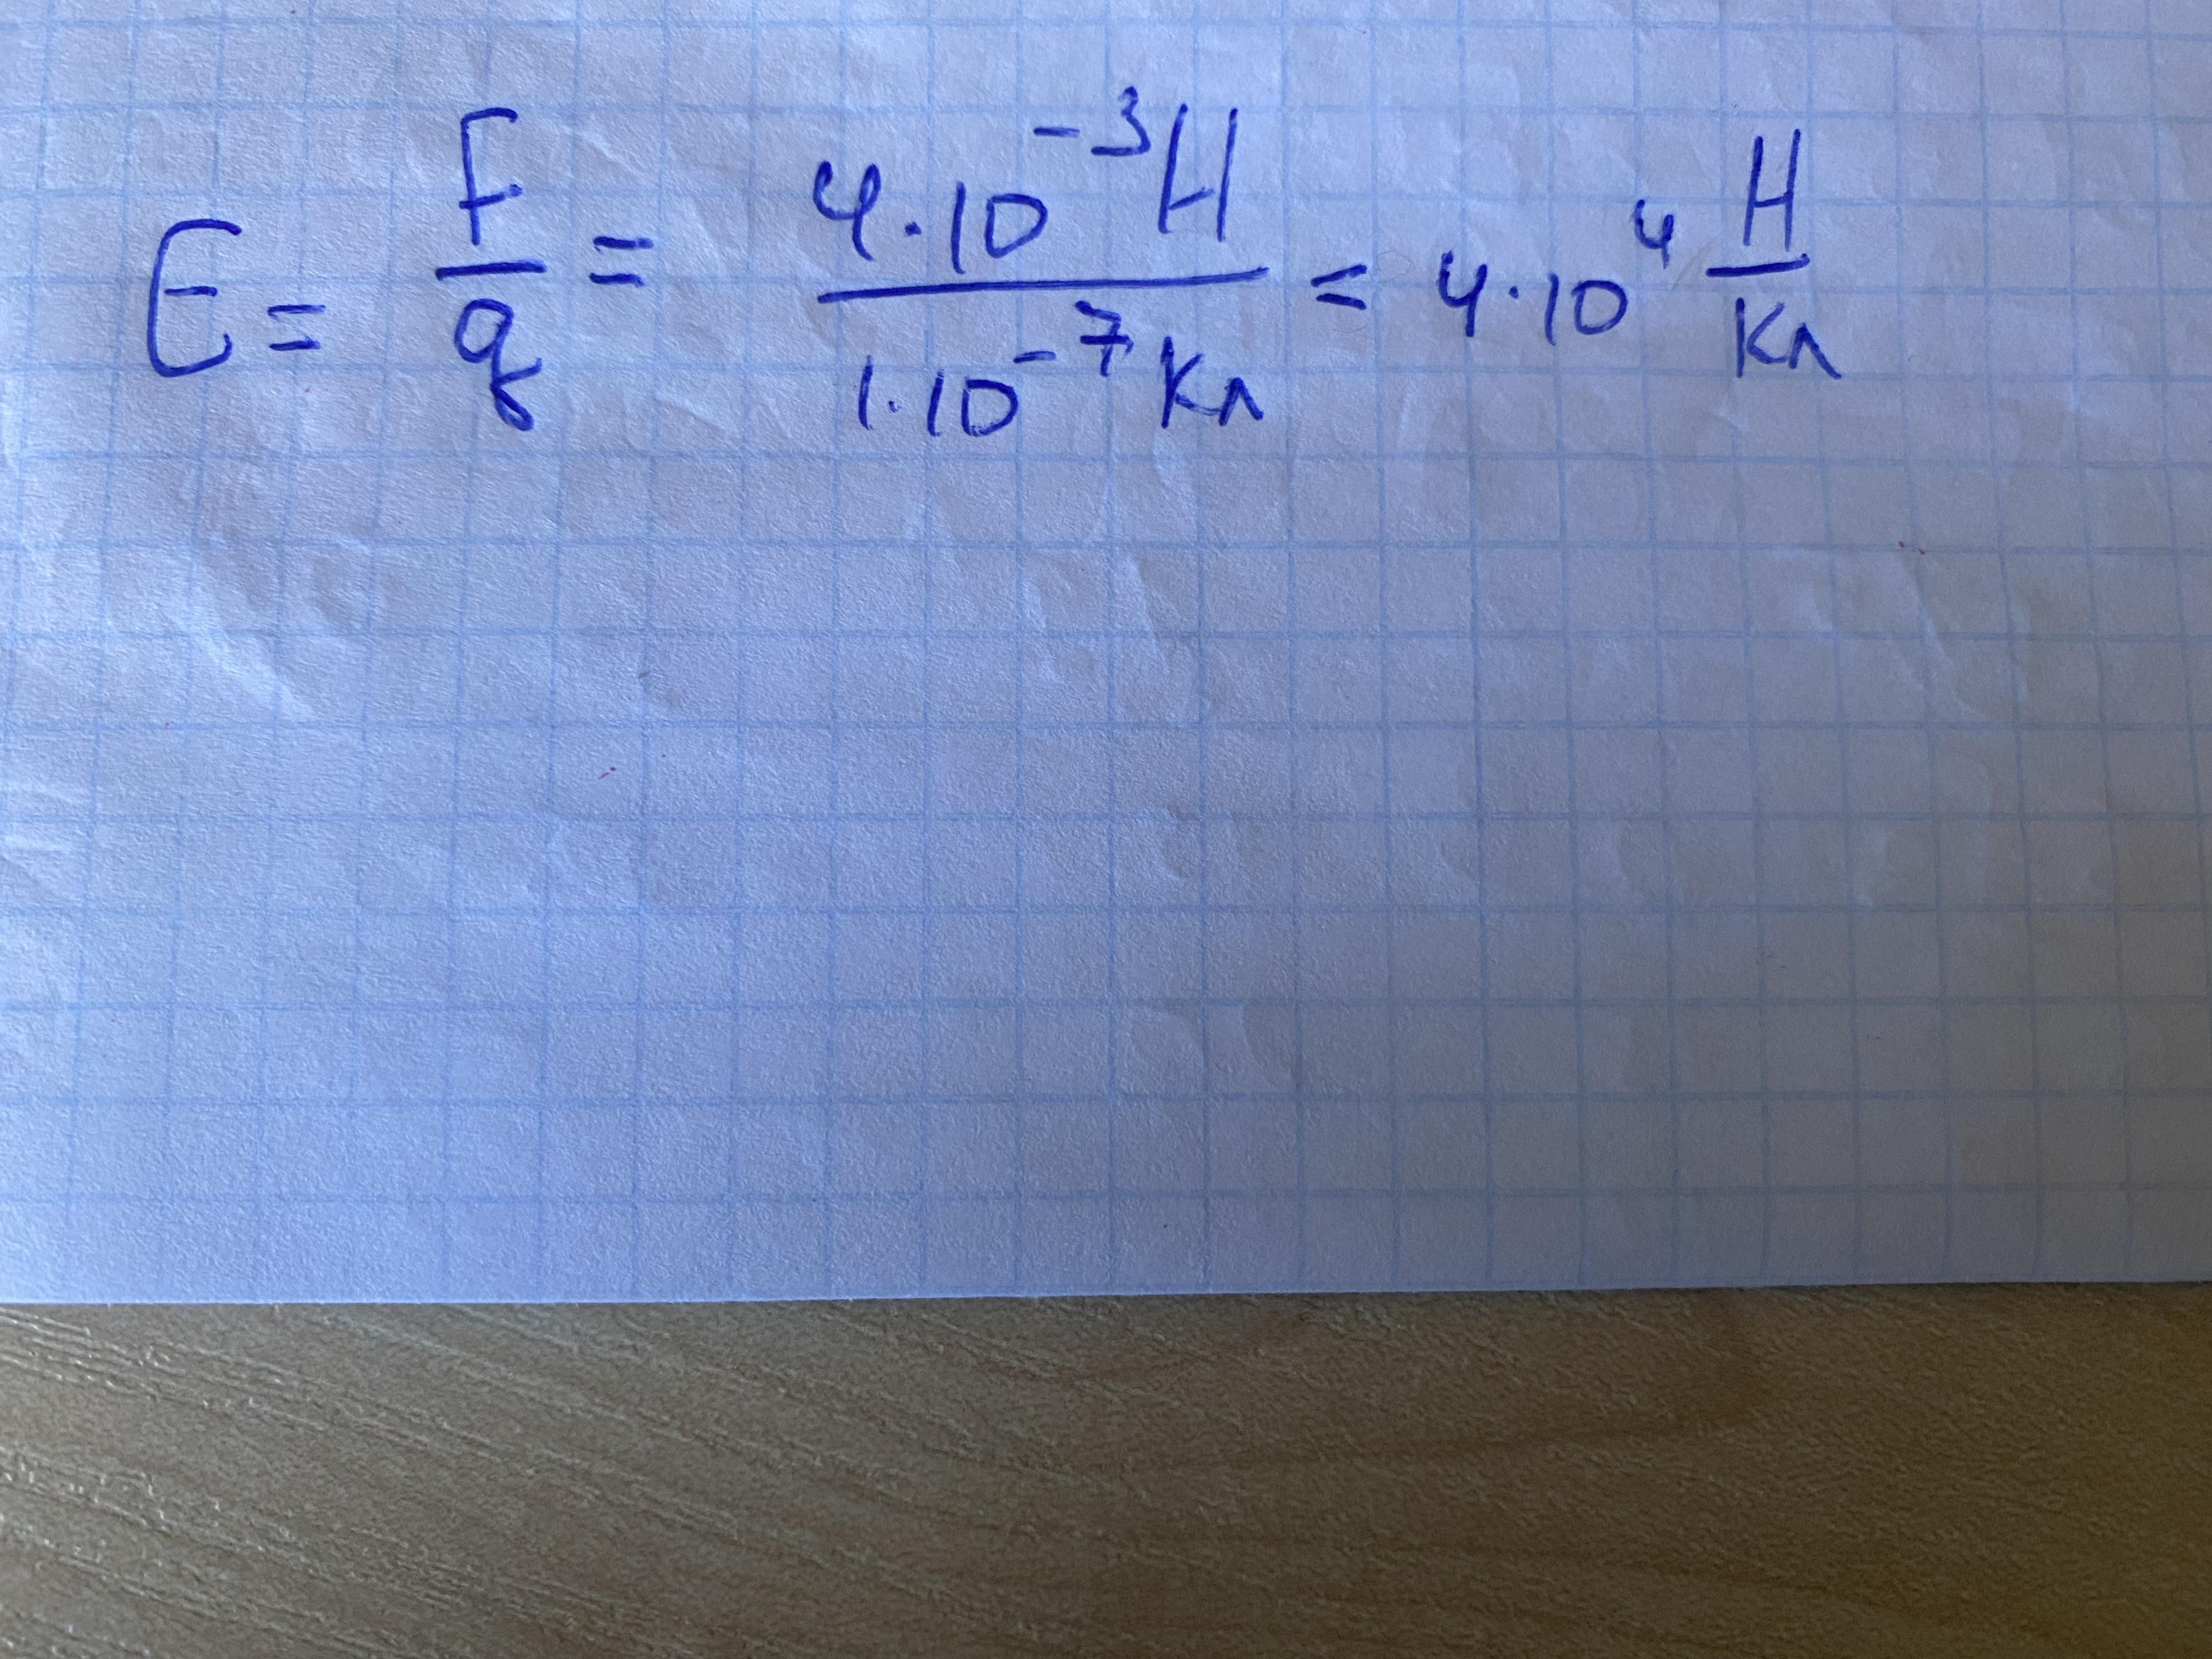 E = F/q = 4·10⁻³ Н / 1·10⁻⁷ Кл = 4·10⁴ Н/Кл